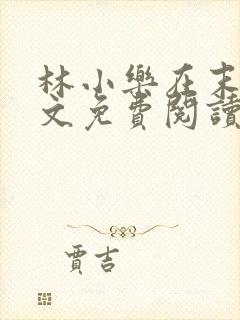 林小樂在末
文免費閱讀
賈吉